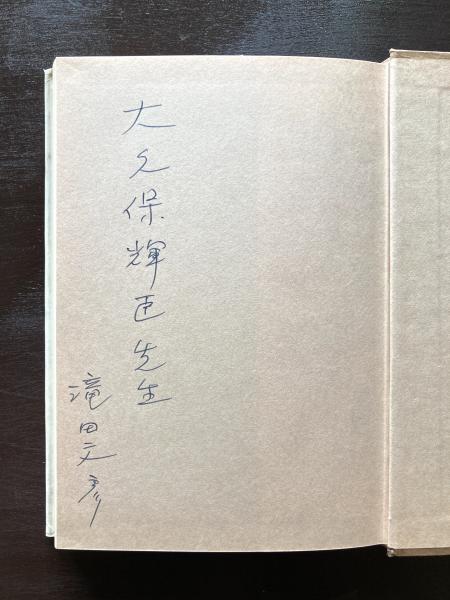 大久保輝臣先生
滝田文彦